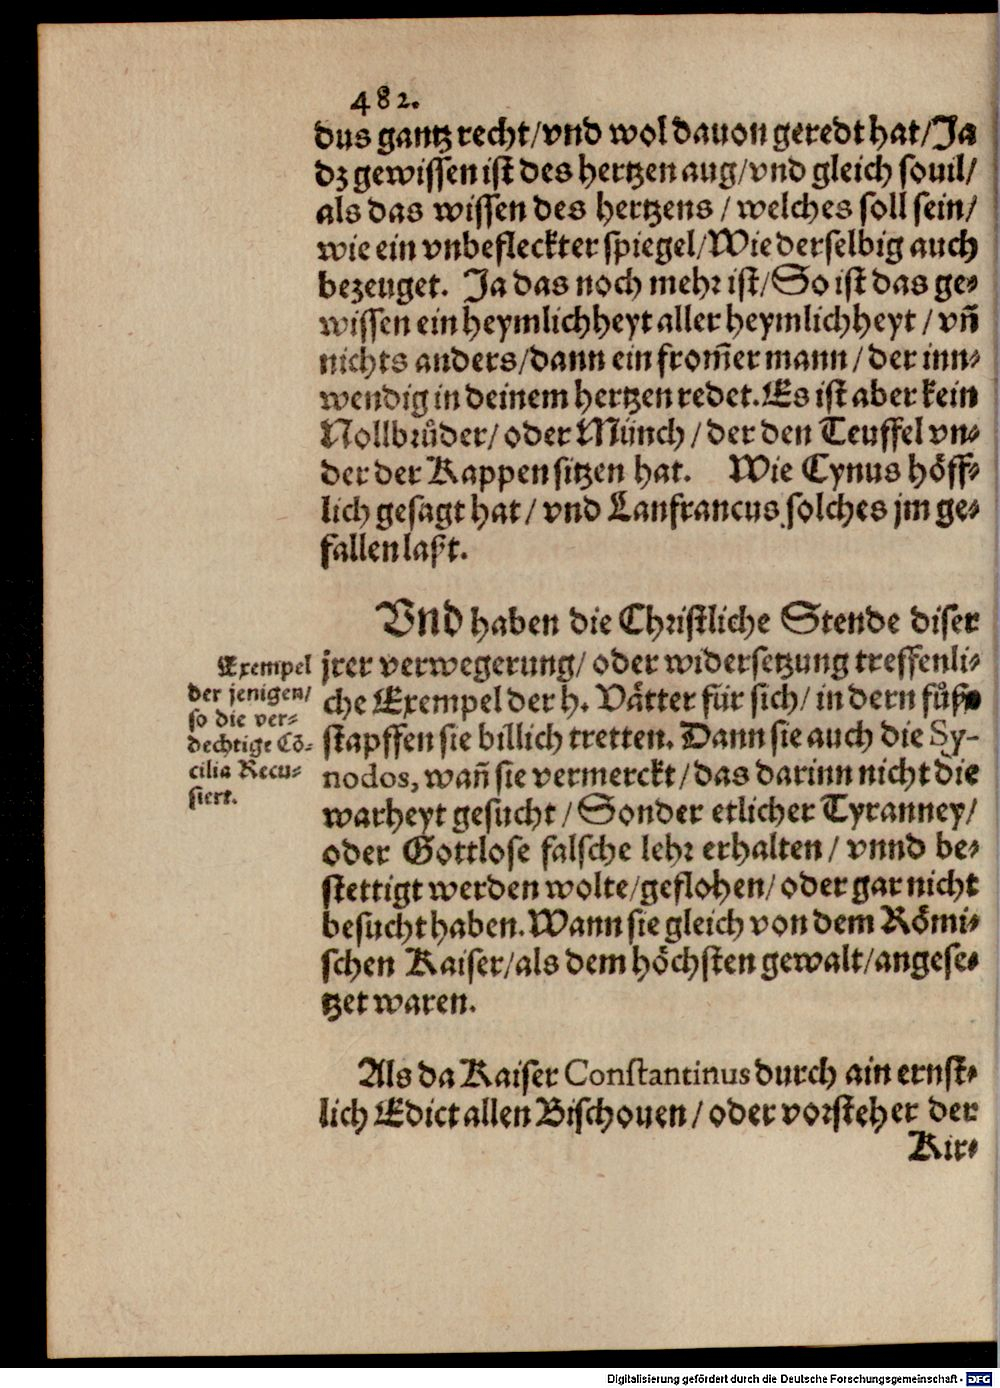 482.
dus gantz recht/vnd wol dauon geredt hat/Ja
dz gewissen ist des hertzen aug/vnd gleich souil/
als das wissen des hertzens / welches soll sein/
wie ein vnbefleckter spiegel/Wie derselbig auch
bezeuget. Ja das noch mehr ist/So ist das ge-
wissen ein heymlichheyt aller heymlichheyt / vn̄
nichts anders/dann ein from̄er mann / der inn-
wendig in deinem hertzen redet. Es ist aber kein
Nollbrůder/ oder Münch / der den Teuffel vn-
der der Kappen sitzen hat. Wie Cynus höff-
lich gesagt hat / vnd Lanfrancus solches jm ge-
fallen laßt.
VNd haben die Christliche Stende diser
jrer verwegerung/ oder widersetzung treffenli-
che Exempel der h. Vätter für sich/ in dern fůß-
stapffen sie billich tretten. Dann sie auch die Sy-
nodos, wan̄ sie vermerckt / das darinn nicht die
warheyt gesucht / Sonder etlicher Tyranney/
oder Gottlose falsche lehr erhalten / vnnd be-
stettigt werden wolte/geflohen/ oder gar nicht
besucht haben. Wann sie gleich von dem Römi-
schen Kaiser/als dem höchsten gewalt/angese-
tzet waren.
Exempel
der jenigen/
so die ver-
dechtige Cō-
cilia Recu-
siert.
Als da Kaiser Constantinus durch ain ernst-
lich Edict allen Bischouen / oder vorsteher der
Kir-
Digitalisierung gefördert durch die Deutsche Forschungsgemeinschaft - DFG